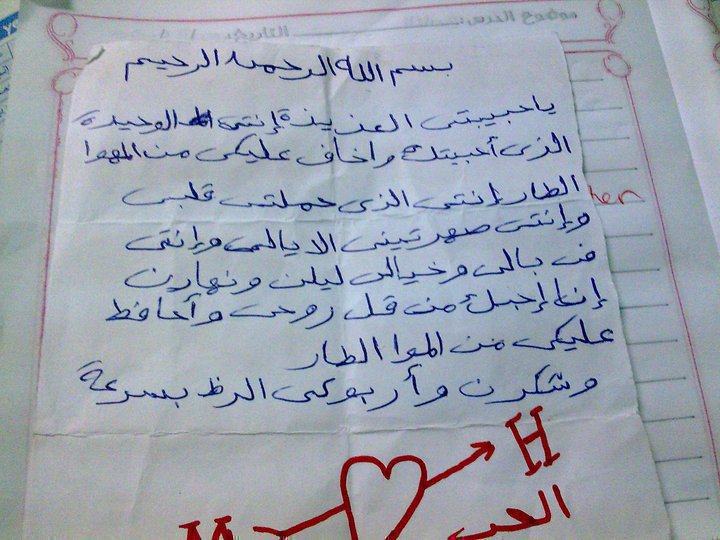 موضوع الدرس
التاريخ
بسم الله الرحمن الرحيم
ياحبيبتي العزيزة إنتي الوحيدة
الذي أحبيتك واخاف عليكي من الهوا
الطار إنتي الذي حملتي قلبي
her
وإنتي صهرتيني الايالي وإنتي
في بالي وخيالي ليلن ونهارن
إنا إحبك من قل روحي وأحافظ
عليكي من الهوا الطار
وشكرن وأربوكي الرظ بسرعة
H
الحب
M